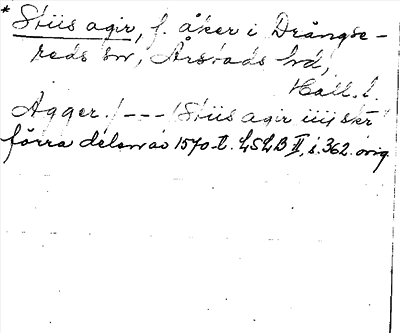 * Stiis agir, f. åker i Drängse-
reds sn, Årstads hd,
Hall. l.
Agger./ --- /Stiis agir iiij skr
förra delen av 1570-t. LSLB II, s. 362. orig.